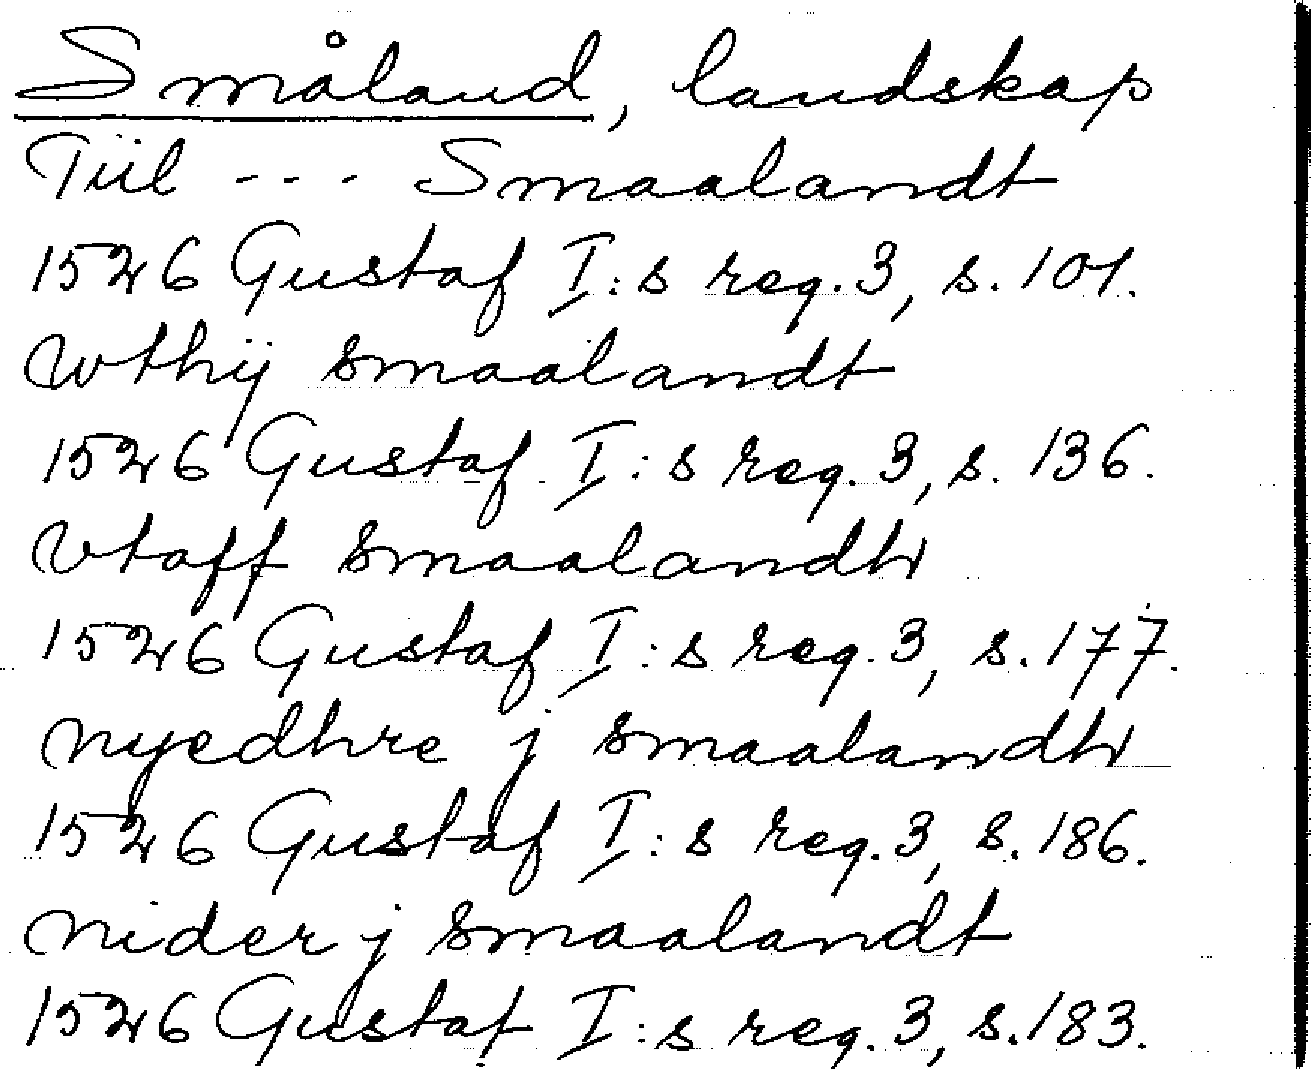 Småland, landskap
Tiil --- Smaalandt
1526 Gustaf I:s reg. 3, s. 101.
wthij smaalandt
1526 Gustaf I:s reg. 3, s. 136.
vtaff smaalandh
1526 Gustaf I:s reg. 3, s. 177.
nyedhre j smaalandh
1526 Gustaf I:s reg. 3, s. 186.
nider j smaalandt
1526 Gustaf I:s reg. 3, s. 183.